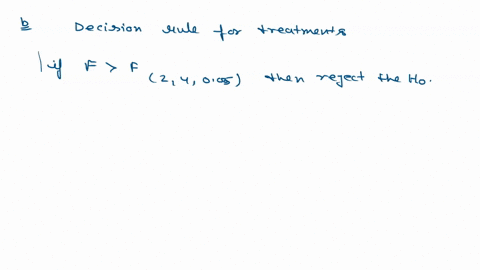 b Decision rule for treatments
if F > F (2, 4, 0.05) then reject the Ho.